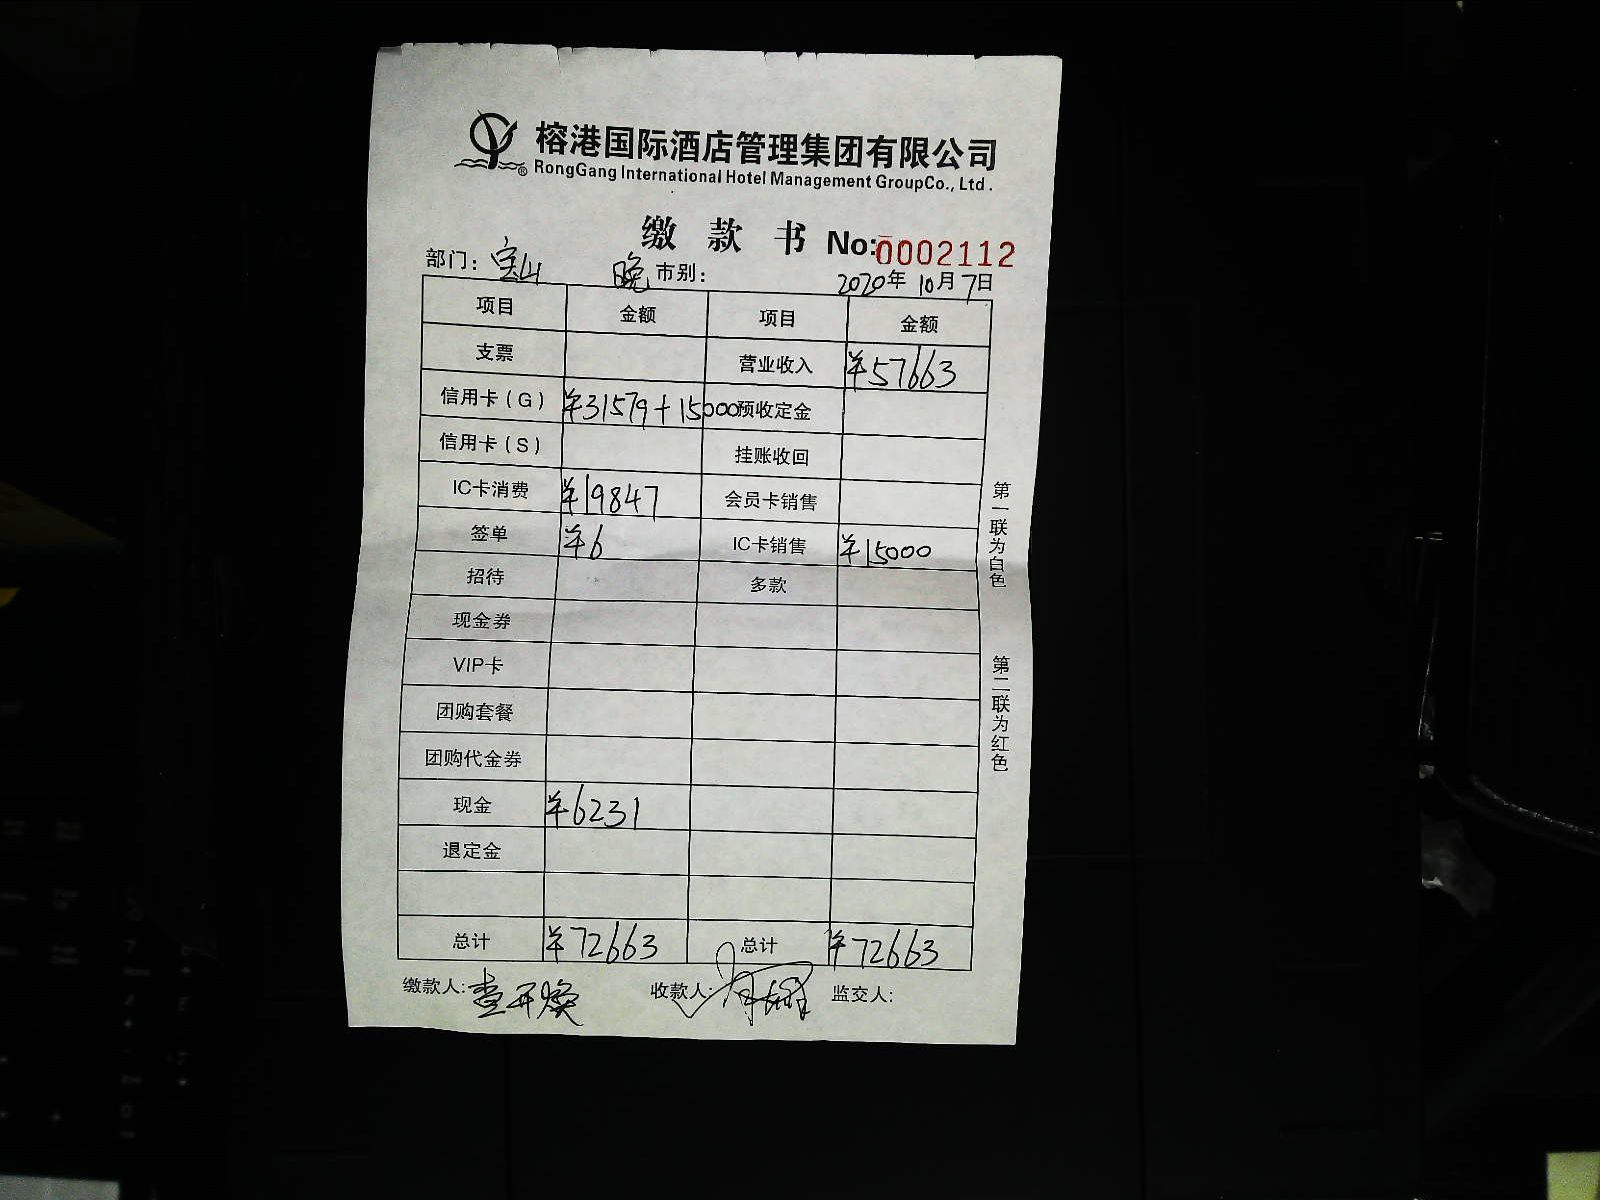 榕港国际酒店管理集团有限公司
® RongGang International Hotel Management GroupCo., Ltd.
缴款书 No:0002112
部门: 宝山 晚市别: 2020年10月7日
项目 金额 项目 金额
支票 营业收入 ¥57663
信用卡(G) ¥31579+15000 预收定金
信用卡(S) 挂账收回
IC卡消费 ¥19847 会员卡销售
签单 ¥6 IC卡销售 ¥15000
招待 多款
现金券
VIP卡
团购套餐
团购代金券
现金 ¥6231
退定金
总计 ¥72663 总计 ¥72663
缴款人: 收款人: 监交人:
第一联为白色
第二联为红色